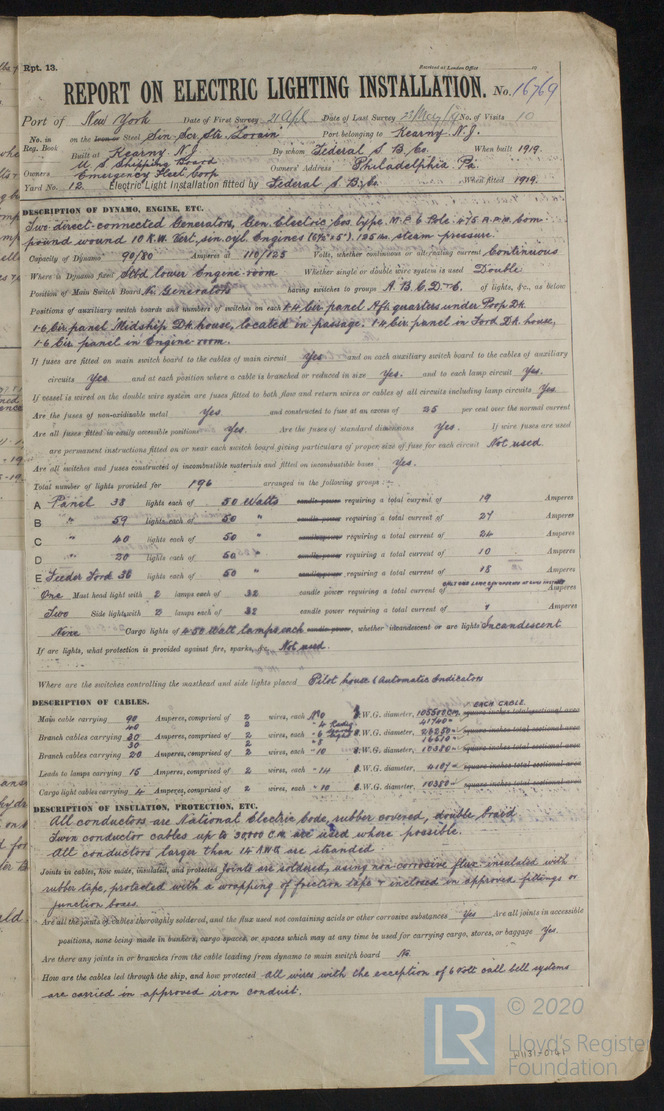 Rpt. 13.
Received at London Office
REPORT ON ELECTRIC LIGHTING INSTALLATION. No. 16769
Port of New York Date of First Survey 21 Apl Date of Last Survey 28 May/19 No. of Visits 10
No. in Reg. Book on the Iron or Steel Sin. Scr. Str. Lorain Port belonging to Kearny N.J.
Built at Kearny N.J. By whom Federal S B Co. When built 1919.
Owners U S Shipping Board Emergency Fleet Corp Owners' Address Philadelphia Pa.
Yard No. 12 Electric Light Installation fitted by Federal S. B. Co. When fitted 1919.
DESCRIPTION OF DYNAMO, ENGINE, ETC.
Two direct-connected Generators, Gen. Electric Cos. type M.P. 6 Pole 475 R.P.M. Com-
pound wound 10 K.W. Vert. sin. cyl. Engines (6½"x5"). 125 lbs. steam pressure.
Capacity of Dynamo 90/80 Amperes at 110/125 Volts, whether continuous or alternating current Continuous
Where is Dynamo fixed Stbd lower Engine room Whether single or double wire system is used Double
Position of Main Switch Board Nr. Generators having switches to groups A. B. C. D. & E. of lights, &c., as below
Positions of auxiliary switch boards and numbers of switches on each 1-4 Cir panel Aft quarters under Poop Dk
1-6 Cir. panel Midship Dk. house, located in passage. 1-4 Cir panel in Ford Dk. house,
1-6 Cir. panel in Engine room.
If fuses are fitted on main switch board to the cables of main circuit Yes and on each auxiliary switch board to the cables of auxiliary
circuits Yes and at each position where a cable is branched or reduced in size Yes. and to each lamp circuit Yes.
If vessel is wired on the double wire system are fuses fitted to both flow and return wires or cables of all circuits including lamp circuits Yes
Are the fuses of non-oxidizable metal Yes and constructed to fuse at an excess of 25 per cent over the normal current
Are all fuses fitted in easily accessible positions Yes. Are the fuses of standard dimensions Yes. If wire fuses are used
are permanent instructions fitted on or near each switch board giving particulars of proper size of fuse for each circuit Not used
Are all switches and fuses constructed of incombustible materials and fitted on incombustible bases Yes.
Total number of lights provided for 196 arranged in the following groups :—
A Panel 38 lights each of 50 Watts candle power requiring a total current of 19 Amperes
B " 59 lights each of 50 " candle power requiring a total current of 27 Amperes
C " 40 lights each of 50 " candle power requiring a total current of 24 Amperes
D " 20 lights each of 50 candle power requiring a total current of 10 Amperes
E Feeder Ford 36 lights each of 50 " candle power requiring a total current of 18 Amperes
One Mast head light with 2 lamps each of 32 candle power requiring a total current of Amperes
Two Side light with 2 lamps each of 32 candle power requiring a total current of Amperes
Nine Cargo lights of 4-50 Watt lamps each candle power, whether incandescent or arc lights Incandescent
If arc lights, what protection is provided against fire, sparks, &c. Not used
Where are the switches controlling the masthead and side lights placed Pilot house (Automatic Indicators
DESCRIPTION OF CABLES. EACH CABLE.
Main cable carrying 90 Amperes, comprised of 2 wires, each No 0 B.W.G. diameter, 105500 C.M. square inches total sectional area
40 2 " 4 41740 "
Branch cables carrying 30 Amperes, comprised of 2 wires, each " 6 B.W.G. diameter, 26250 " square inches total sectional area
30 2 " 8 16510 "
Branch cables carrying 20 Amperes, comprised of 2 wires, each " 10 B.W.G. diameter, 10380 " square inches total sectional area
Leads to lamps carrying 15 Amperes, comprised of 2 wires, each " 14 B.W.G. diameter, 4107 " square inches total sectional area
Cargo light cables carrying 4 Amperes, comprised of 2 wires, each " 10 B.W.G. diameter, 10380 " square inches total sectional area
DESCRIPTION OF INSULATION, PROTECTION, ETC.
All conductors are National Electric Code, rubber covered, double braid
Twin conductor cables up to 30,000 C.M. are used where possible.
All conductors larger than 14 A.W.G. are stranded.
Joints in cables, how made, insulated, and protected Joints are soldered, using non-corrosive flux insulated with
rubber tape, protected with a wrapping of friction tape & inclosed in approved fittings or
junction boxes.
Are all the joints of cables thoroughly soldered, and the flux used not containing acids or other corrosive substances Yes Are all joints in accessible
positions, none being made in bunkers, cargo spaces, or spaces which may at any time be used for carrying cargo, stores, or baggage Yes.
Are there any joints in or branches from the cable leading from dynamo to main switch board No.
How are the cables led through the ship, and how protected All wires with the exception of 6 Volt call bell systems
are carried in approved iron conduit.
© 2020
LR Lloyd's Register
Foundation
W1131-0141